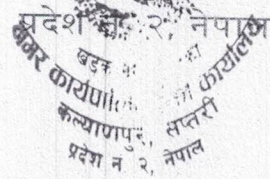 प्रदेश न. २, नेपाल
खडक
नगर कार्यपालिका कार्यालय
कल्याणपुर, सप्तरी
प्रदेश न २, नेपाल